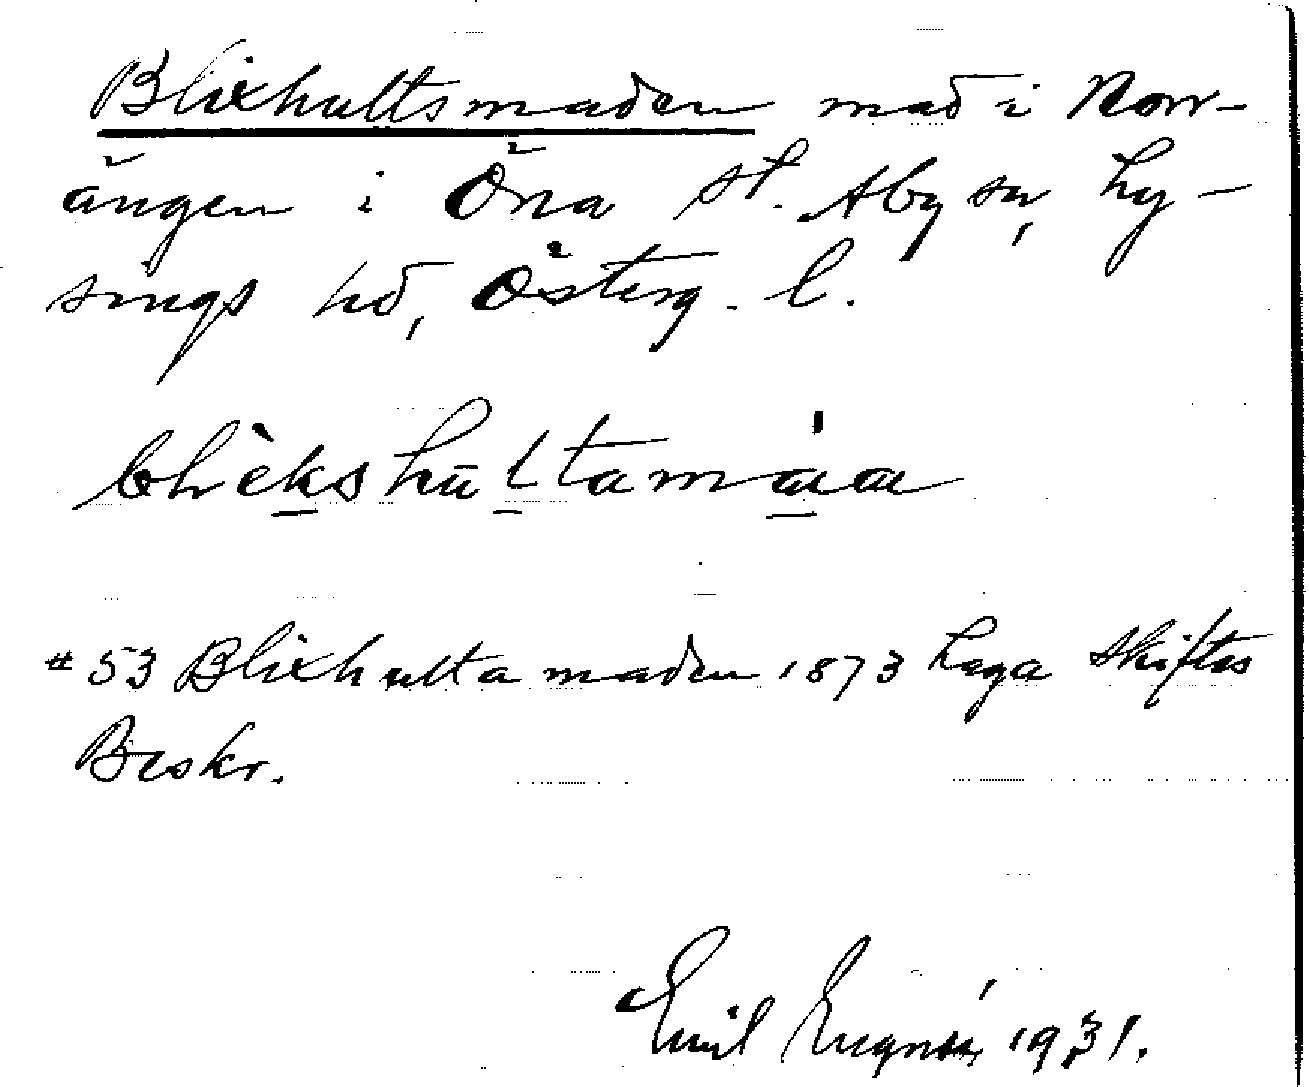 Blixhultsmaden mad i Norr-
ängen i Öna St. Åby sn, Ly-
sings hd, Österg. l.
blèkshu̅ltamáa
# 53 Blixhulta maden 1873 Laga Skiftes
Beskr.
Emil 1931.